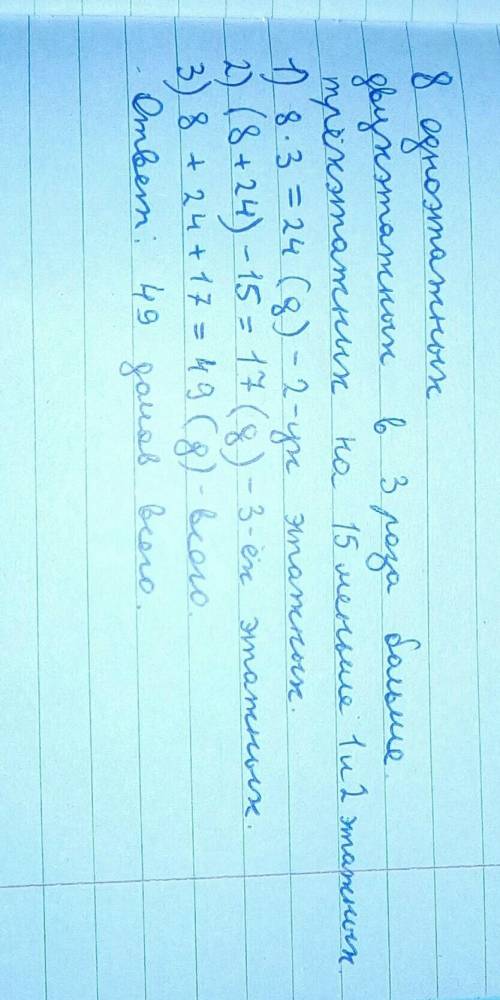 8 одноэтажных
двухэтажных в 3 раза больше.
трёхэтажных на 15 меньше 1 и 2 этажных.
1) 8 · 3 = 24 (д) - 2-ух этажных.
2) (8 + 24) - 15 = 17 (д) - 3-ёх этажных.
3) 8 + 24 + 17 = 49 (д) - всего.
Ответ: 49 домов всего.